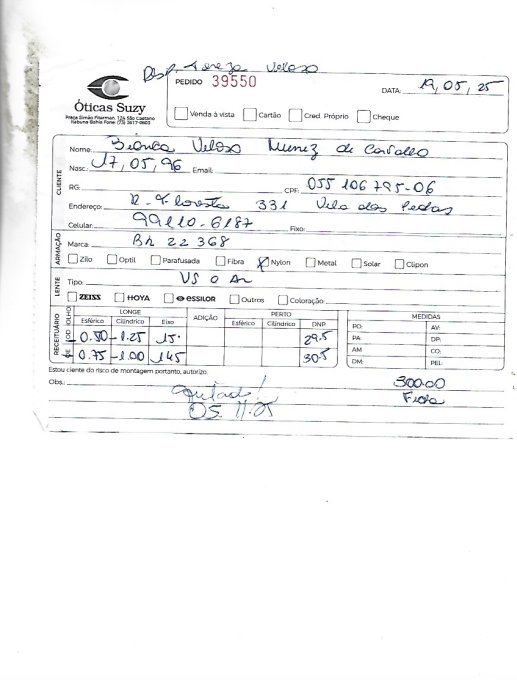 Resp. Tereza Veloso
PEDIDO 39550
DATA: 19, 05, 25
Óticas Suzy
Praça Simão Fiterman, 124 São Caetano
Itabuna-Bahia Fone: (73) 3617-0603
Venda à vista Cartão Cred. Próprio Cheque
CLIENTE
Nome: Bianca Veloso Munez de Carvalho
Nasc.: 17, 05, 96 Email:
RG: CPF: 055 106 795-06
Endereço: R. Floresta 331 Vila das Pedras
Celular: 99110-6187 Fixo:
ARMAÇÃO
Marca: Bh 22 368
Zilo Optil Parafusada Fibra Nylon Metal Solar Clipon
LENTE
Tipo: VS o Ar
ZEISS HOYA essilor Outros Coloração:
RECEITUÁRIO
OLHO LONGE ADIÇÃO PERTO MEDIDAS
Esférico Cilíndrico Eixo Esférico Cilíndrico DNP
OD - 0.50 - 1.25 15° 29.5
OE 0.75 - 1.00 145 30.5
PO: AV:
PA: DP:
AM CO:
DM: PEL:
Estou ciente do risco de montagem portanto, autorizo
Obs.: 300.00
05.11.25